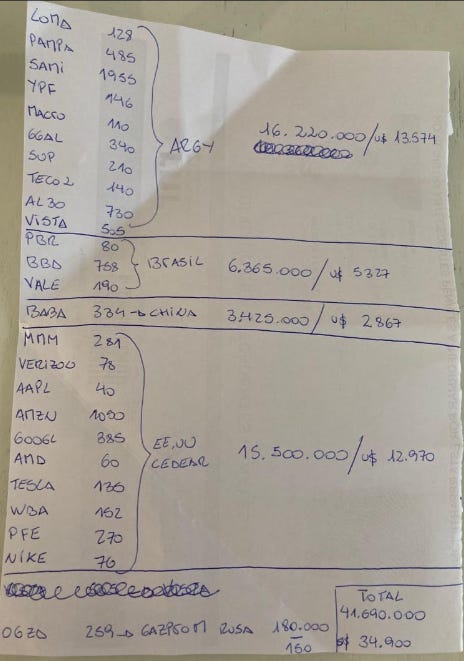 LOMA 128
PAMPA 485
SAMI 1955
YPF 146
MACRO 110
GGAL 340
SUP 210
TECO2 140
AL30 730
VISTA 505
ARGY 16.220.000/u$ 13.574
PBR 80
BBD 758
VALE 190
BRASIL 6.365.000/u$ 5327
BABA 334 → CHINA 3.425.000/u$ 2867
MMM 281
VERIZON 78
AAPL 40
AMZN 1050
GOOGL 385
AMD 60
TESLA 135
WBA 152
PFE 270
NIKE 76
EE.UU
CEDEAR
15.500.000/u$ 12.970
OGZD 259 → GAZPROM RUSA 180.000
150
TOTAL
41.690.000
u$ 34.900